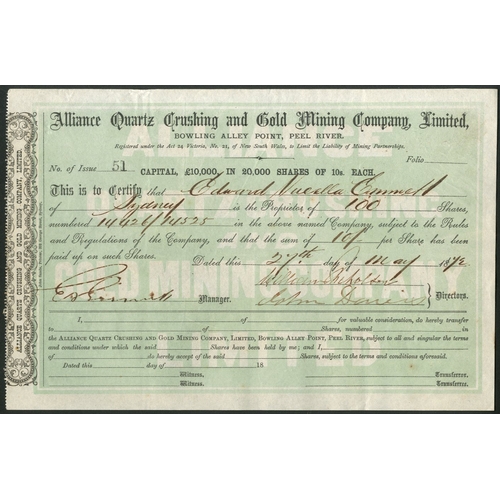 Alliance Quartz Crushing and Gold Mining Company, Limited,
BOWLING ALLEY POINT, PEEL RIVER.
Registered under the Act 24 Victoria, No. 21, of New South Wales, to Limit the Liability of Mining Partnerships.
No. of Issue 51 Folio
CAPITAL, £10,000, IN 20,000 SHARES OF 10s. EACH.
This is to Certify that Edward Emmett
of Sydney is the Proprietor of 100 Shares,
numbered in the above named Company, subject to the Rules
and Regulations of the Company, and that the sum of 10/ per Share has been
paid up on such Shares. Dated this 27th day of May 1872
Manager. Directors.
I, of for valuable consideration, do hereby transfer
to of Shares, numbered in
the ALLIANCE QUARTZ CRUSHING AND GOLD MINING COMPANY, LIMITED, BOWLING ALLEY POINT, PEEL RIVER, subject to all and singular the terms
and conditions under which the said Shares have been held by me; and I,
of do hereby accept of the said Shares, subject to the terms and conditions aforesaid.
Dated this day of 18
Witness. Transferror.
Witness. Transferree.
ALLIANCE QUARTZ CRUSHING AND GOLD MINING COMPANY, LIMITED.